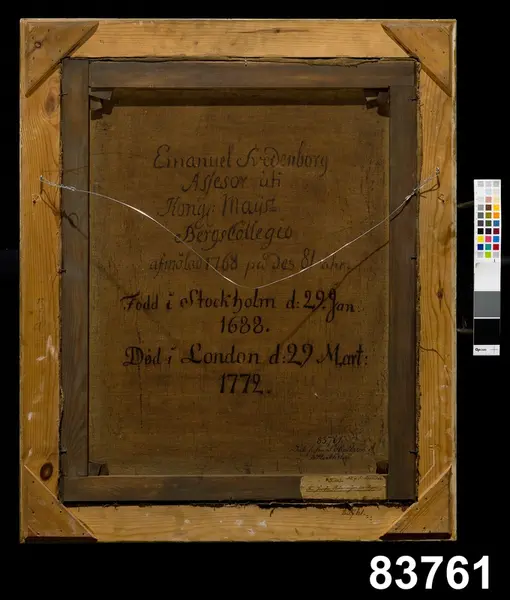 Emanuel Svedenborg
Assesor uti
Kongs: Maÿtz
BergsCollegio
afmålad 1768 på des 81 åhr.
Född i Stockholm d: 29. Jan.
1688.
Död i London d: 29 Mart:
1772.
83761
83761